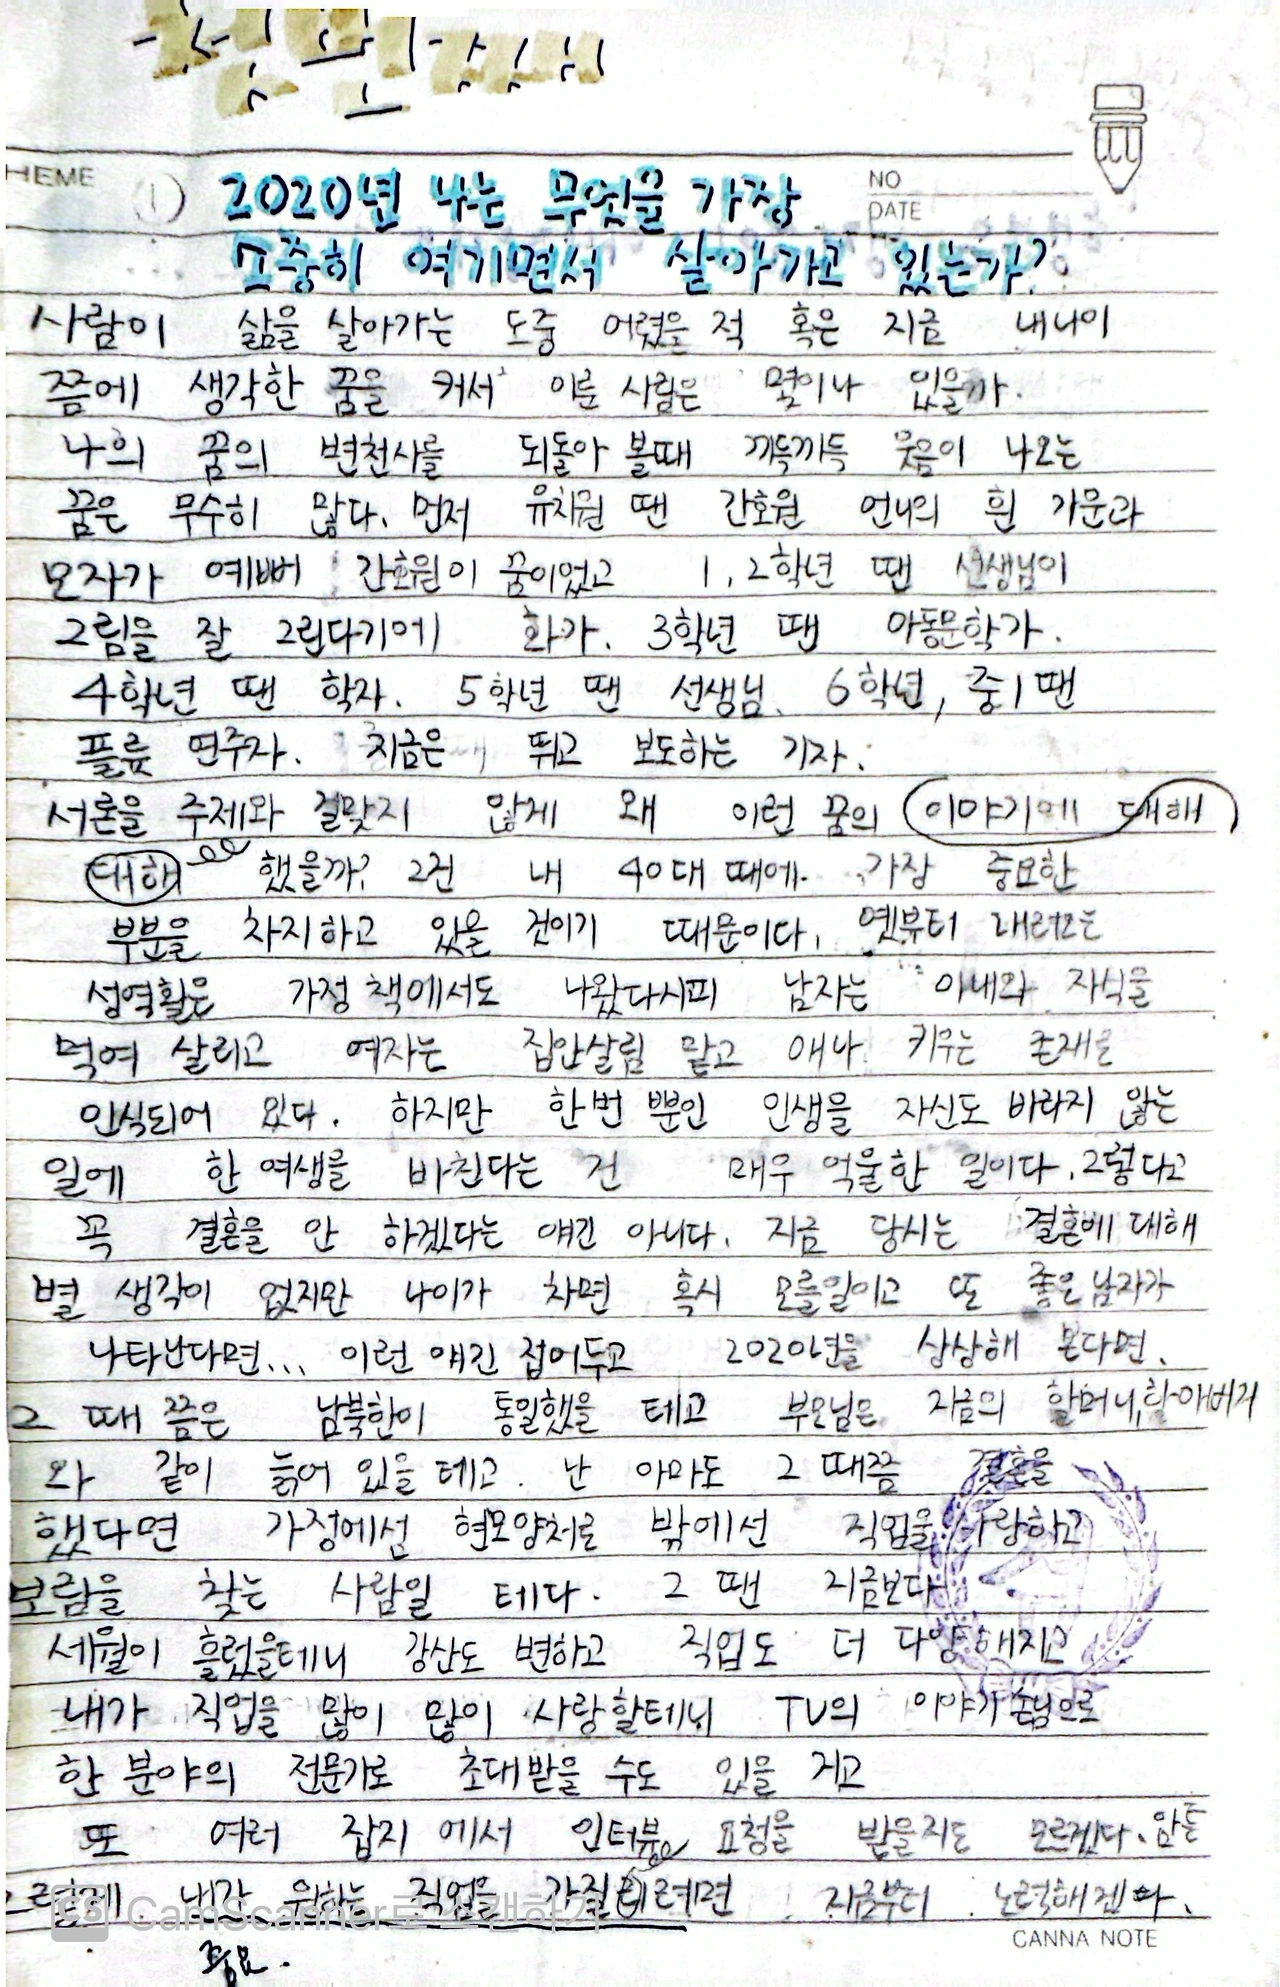 HEME
① 2020년 나는 무엇을 가장
NO
DATE
소중히 여기면서 살아가고 있는가?
사람이 삶을 살아가는 도중 어렸을 적 혹은 지금 내 나이
쯤에 생각한 꿈을 커서 이룬 사람은 몇이나 있을까.
나의 꿈의 변천사를 되돌아 볼때 까득까득 웃음이 나오는
꿈은 무수히 많다. 먼저 유치원 땐 간호원 언니의 흰 가운과
모자가 예뻐 간호원이 꿈이었고 1,2학년 땐 선생님이
그림을 잘 그린다기에 화가. 3학년 땐 아동문학가.
4학년 땐 학자. 5학년 땐 선생님. 6학년, 중1땐
플륫 연주자. 지금은 뛰고 보도하는 기자.
서론을 주제와 걸맞지 않게 왜 이런 꿈의 이야기에 대해
대해 했을까? 그건 내 40대 때에 가장 중요한
부분을 차지하고 있을 것이기 때문이다. 옛부터 내려오는
성역활은 가정 책에서도 나왔다시피 남자는 아내와 자식을
먹여 살리고 여자는 집안살림 맡고 애나 키우는 존재로
인식되어 있다. 하지만 한번 뿐인 인생을 자신도 바라지 않는
일에 한 여생을 바친다는 건 매우 억울한 일이다. 그렇다고
꼭 결혼을 안 하겠다는 얘긴 아니다. 지금 당시는 결혼에 대해
별 생각이 없지만 나이가 차면 혹시 모를일이고 또 좋은 남자가
나타난다면... 이런 얘긴 접어두고 2020년을 상상해 본다면.
그 때 쯤은 남북한이 통일했을 테고 부모님은 지금의 할머니,할아버지
와 같이 늙어 있을 테고. 난 아마도 그 때쯤 결혼을
했다면 가정에선 현모양처로 밖에선 직업을 사랑하고
보람을 찾는 사람일 테다. 그 땐 지금보다
세월이 흘렀을테니 강산도 변하고 직업도 더 다양해지고
내가 직업을 많이 많이 사랑할테니 TV의 이야기 손님으로
한 분야의 전문가로 초대받을 수도 있을 거고
또 여러 잡지에서 인터뷰 요청을 받을지도 모르겠다. 암튼
내가 원하는 직업을 가질 려면 지금부터 노력해겐다.
CamScanner로 스캔하기
CANNA NOTE